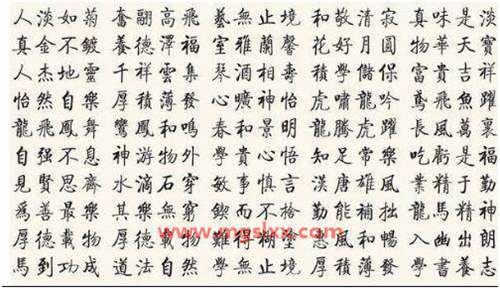 人淡如菊 奮翮高飛 藝無止境 和敬清寂 真味是淡
真金不鍍 養德澤福 室雅蘭馨 花好月圓 物華天寶
人杰地靈 千祥雲集 琴 相壽 學儲 富貴吉祥
怡然自樂 厚積薄發 曠神怡 虎嘯龍吟 鳶飛魚躍
龍飛鳳舞 鸞鳳和鳴 春和景明 龍騰虎躍 長風萬裏
自强不息 神游物外 學貴心悟 知足常樂 吃虧是福
見賢思齊 水滴石穿 敏事慎言 漢唐雄風 業精于勤
爲善最樂 其樂無窮 鍥而不 勤能補拙 龍馬精神
www.mgslxx.com
厚德載物 厚德載物 難得糊塗 惠風和暢 入幽出朗
馬到功成 道法自然 學無止境 厚積薄發 學書養志